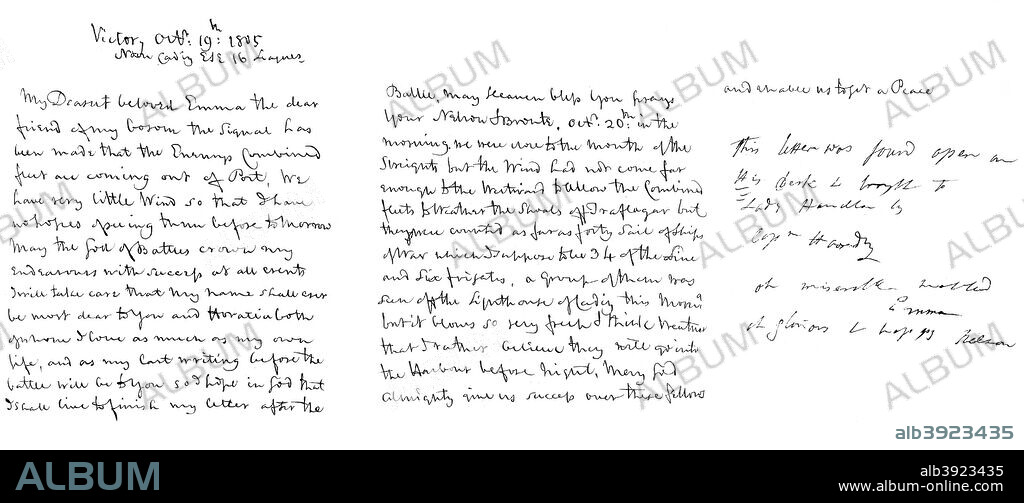 Victory Octr: 19th: 1805
Noon Cadiz ESE 16 Leagues
My Dearest beloved Emma the dear
friend of my bosom the Signal has
been made that the Enemys Combined
fleet are coming out of Port, We
have very little Wind so that I have
no hopes of seeing them before to Morrow
May the God of Battles crown my
Endeavours with success at all events
I will take care that my name shall ever
be most dear to You and Horatia both
of whom I love as much as my own
life, and as my last writing before the
battle will be to You so I hope in God that
I shall live to finish my letter after the
Battle, may Heaven bless You prays
Your Nelson & Bronte, Octr. 20th: in the
morning we were close to the mouth of the
Streights but the Wind had not come far
enough to the Westward to allow the Combined
fleets to Weather the Shoals off Traflagar but
they were counted as far as forty Sail of Ships
of War which I suppose to be 34 of the Line
and Six frigates, a group of them was
seen off the Lighthouse of Cadiz this Morng
but it blows so very fresh & thick weather
that I rather believe they will go into
the Harbour before Night, May God
Almighty give us success over these fellows
and enable us to get a Peace
This letter was found open on
His desk & brought to
Lady Hamilton by
Capn Hardy
oh miserable wretched
Emma
oh glorious & happy Nelson
ALBUM
ALBUM
ALBUM
ALBUM
ALBUM
ALBUM
ALBUM
ALBUM
alb3923435
ALBUM
alb3923435
www.album-online.com